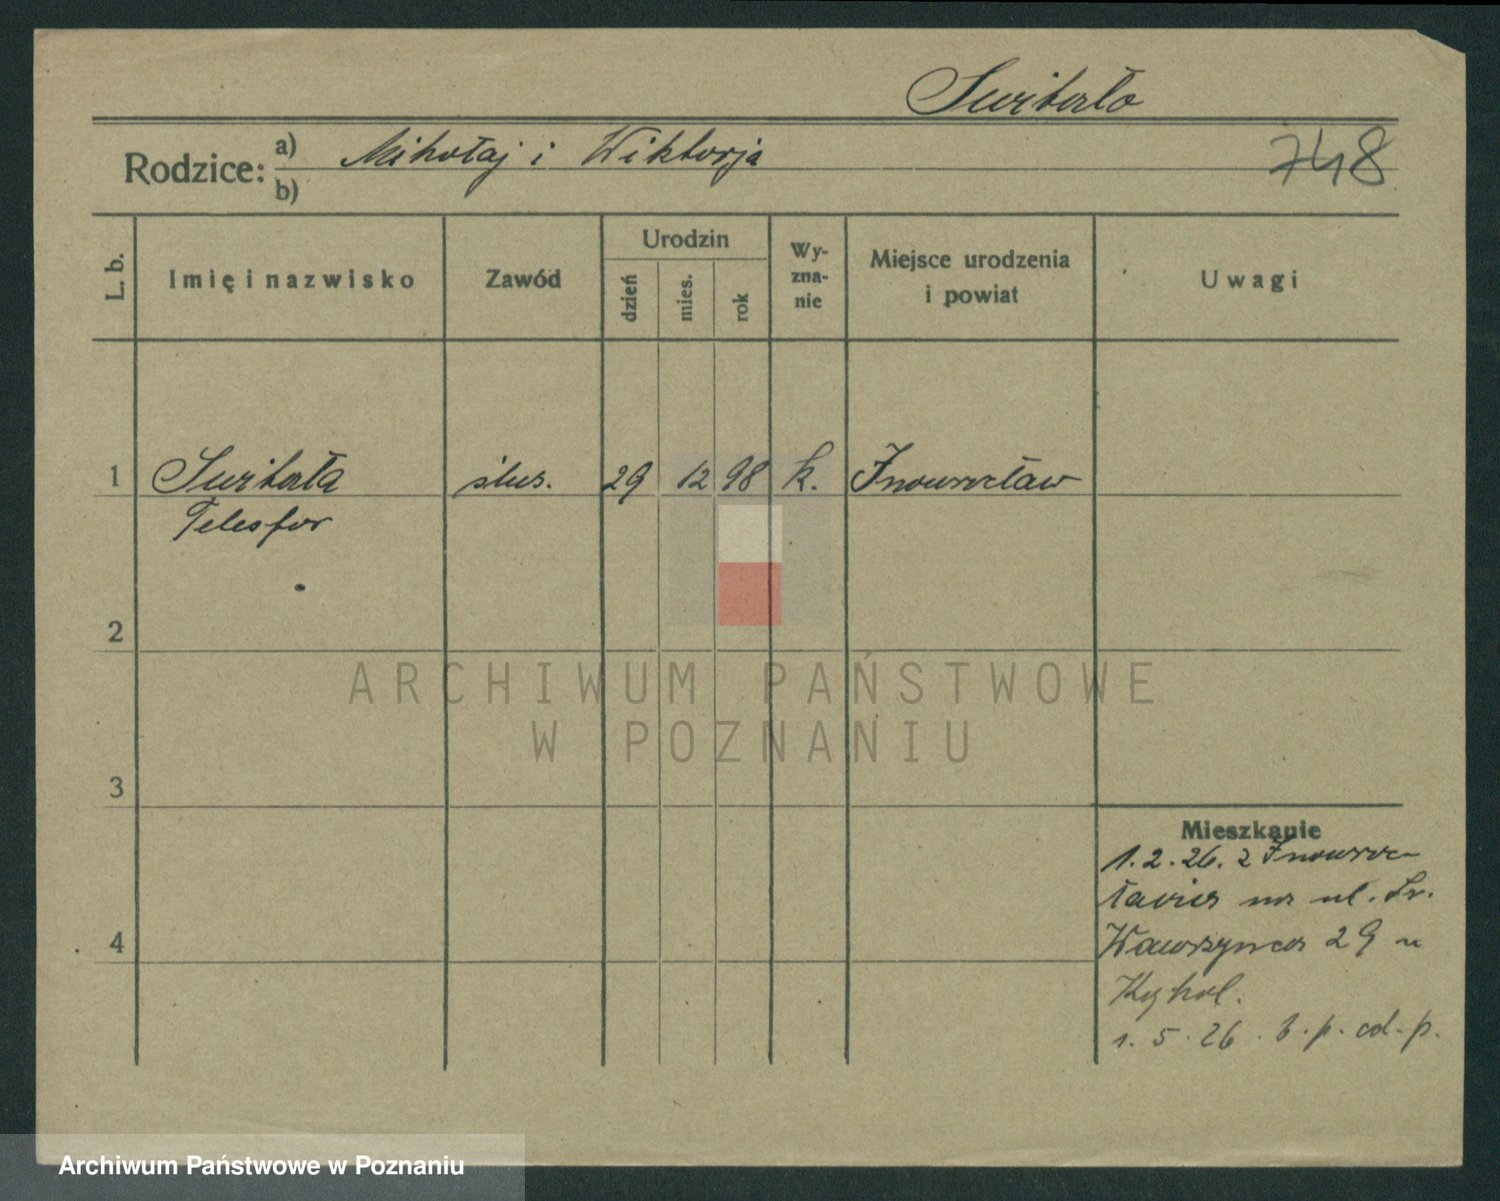 Switała
Rodzice: a) Mikołaj i Wiktorja
b)
748
L. b.
Imię i nazwisko
Zawód
Urodzin
dzień
mies.
rok
Wy-
zna-
nie
Miejsce urodzenia
i powiat
Uwagi
1 Switała ślus. 29 12 98 k. Inowrocław
Telesfor
2
ARCHIWUM PAŃSTWOWE
W POZNANIU
3
4
Mieszkanie
1.2.26. z Inowroc-
ławia na ul. Św.
Wawrzynca 29 u
1.5.26. b.p. od.p.
Archiwum Państwowe w Poznaniu